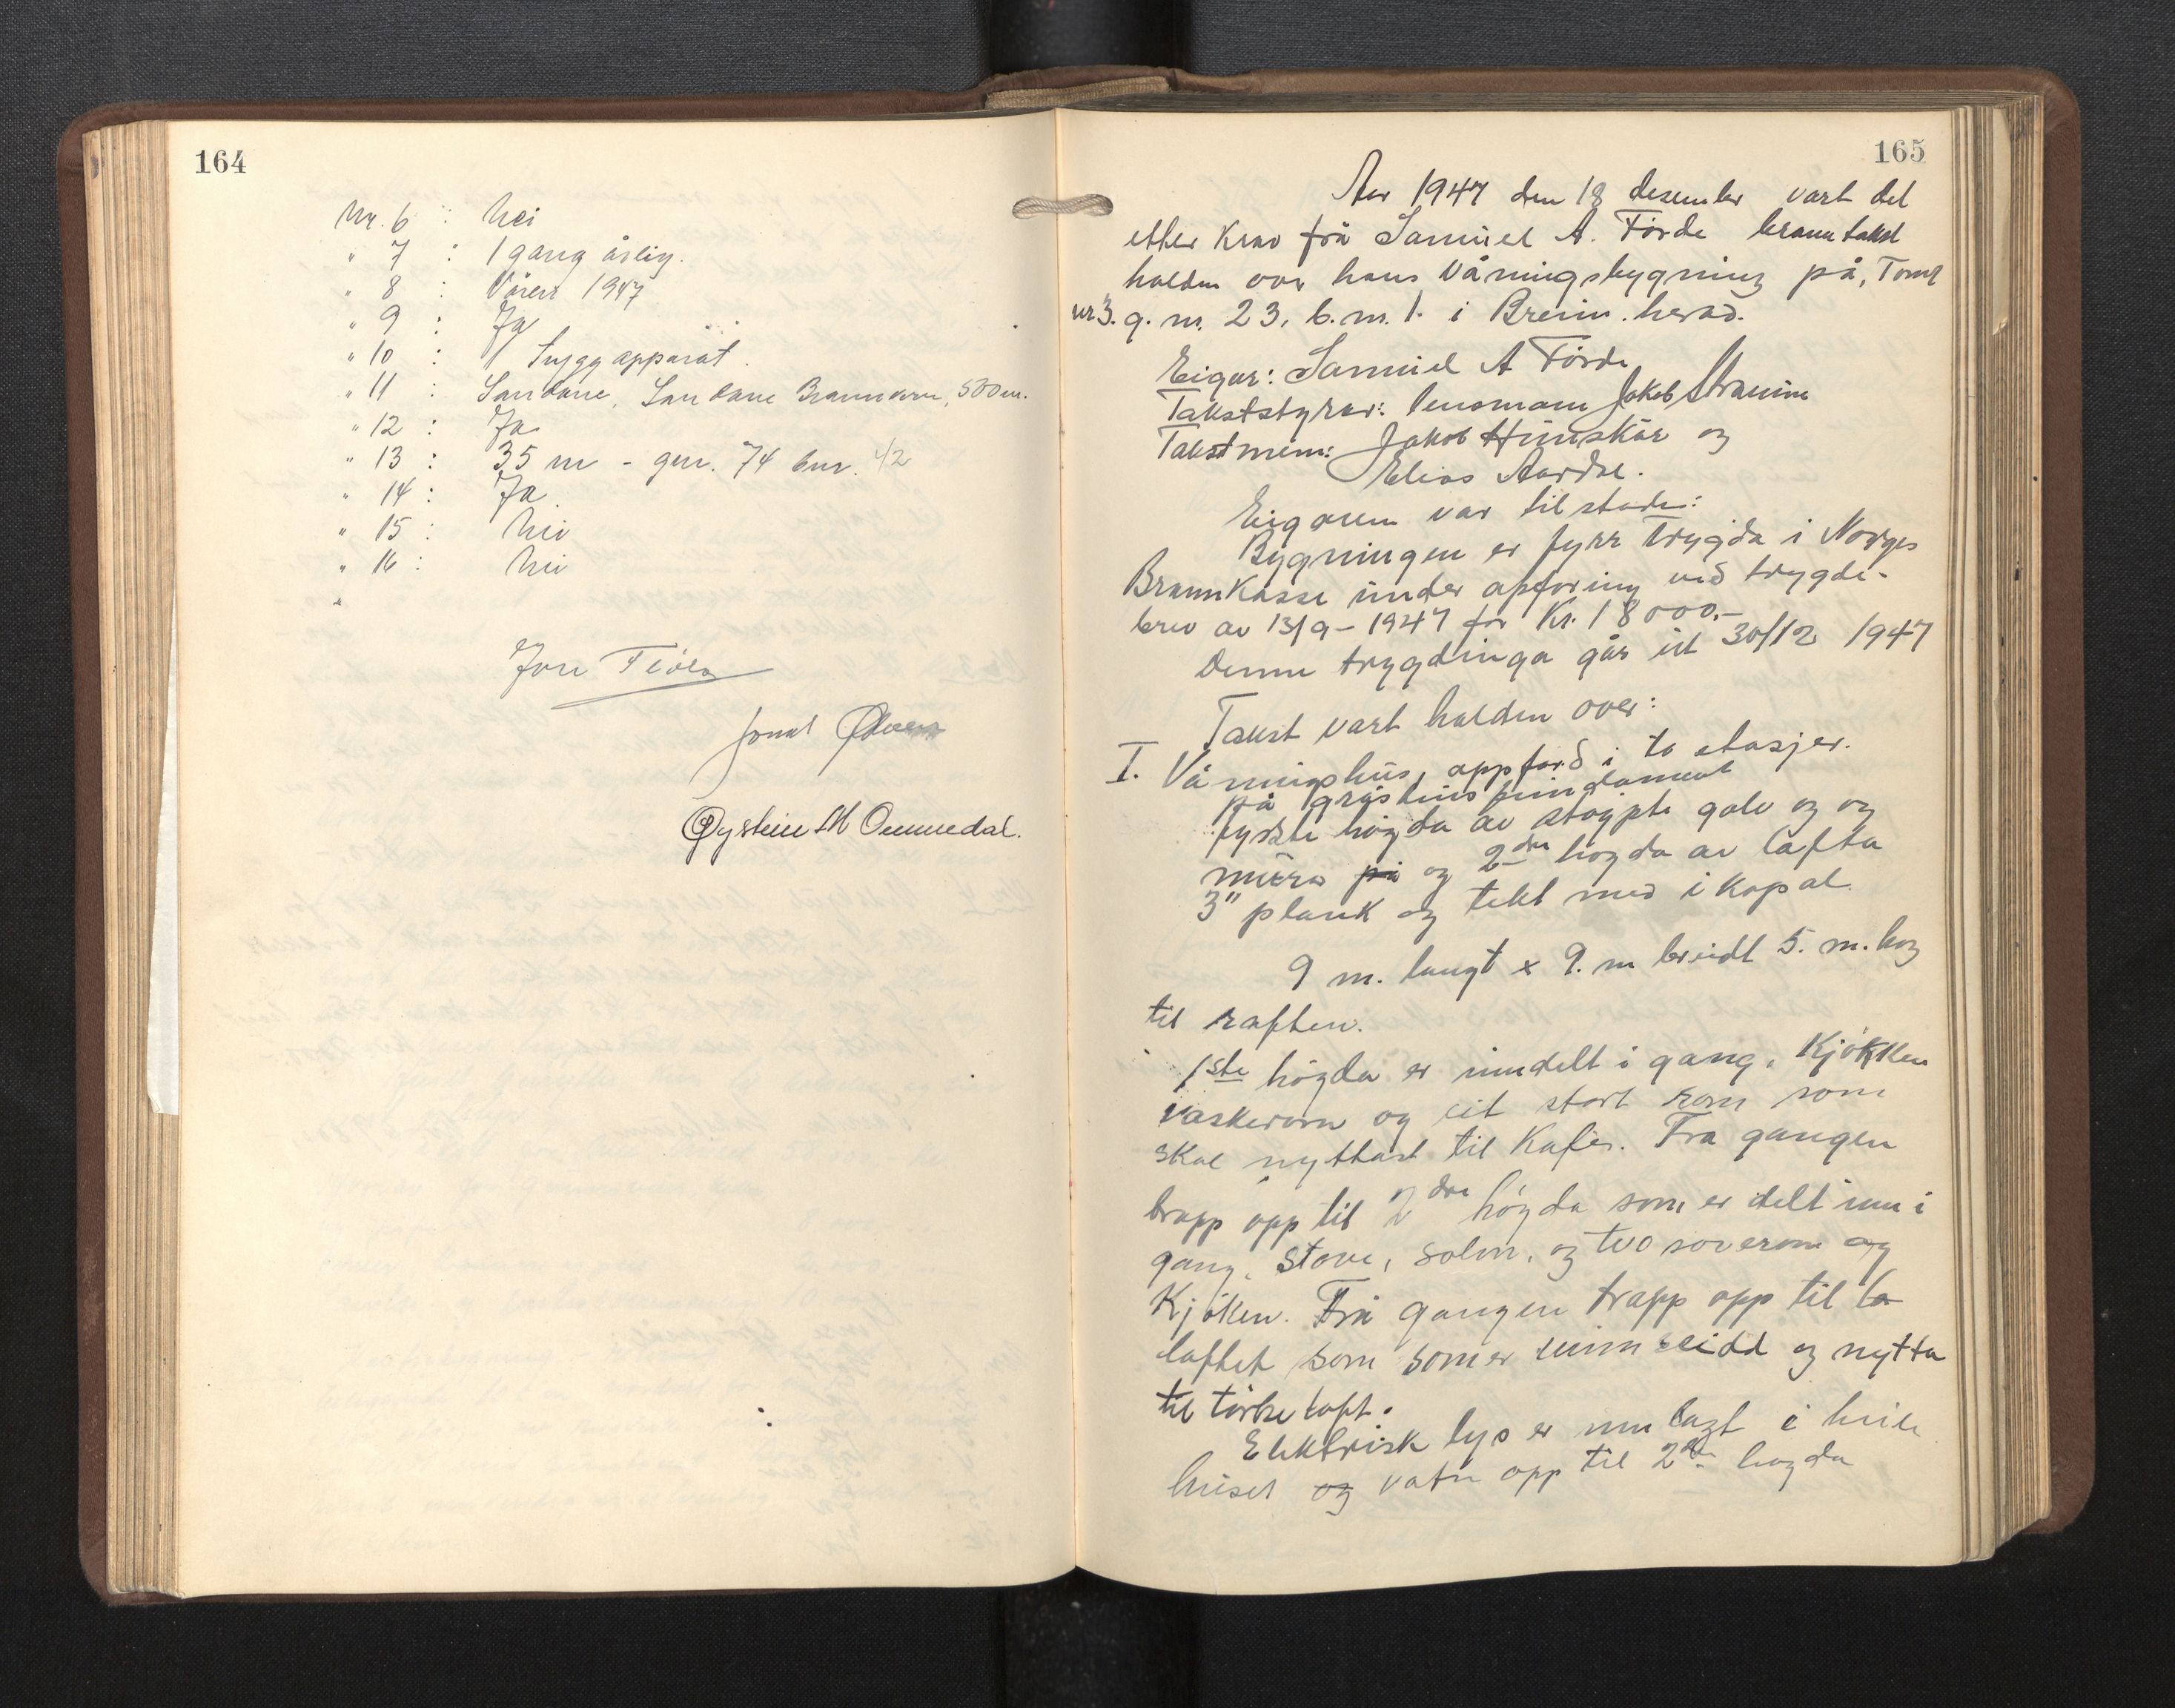 164
Nr. 6 : Nei
" 7 : 1 gang årleg.
" 8 : Våren 1947
" 9 : Ja
" 10 : 1 Tryggapparat.
" 11 : Sandane, Sandane Brannvern, 500 m.
" 12 : Ja
" 13 : 35 m - gnr. 74 bnr. 42
" 14 : Ja
" 15 : Nei
" 16 : Nei
"
Jon
Øystein M Ommedal.
165
Aar 1947 den 18 desember vart det
etter krav frå Samuel A. Förde branntakst
halden over hans våningsbygning på, Tomt
nr 3. g. nr. 23, b. nr. 1. i Breim. herad.
Eigar: Samuel A Förde
Takststyrar: lensmann Jakob
Takstmenn: Jakob Hunskår og
Elias Aardal.
Eigaren var tilstade:
Bygningen er fyrr trygda i Norges
Brannkasse under oppföring ved trygde-
brev av 13/9-1947 for Kr. 18000.-
Denne trygdinga går ut 30/12 1947
Takst vart halden over:
I. Våningshus, oppförd i to etasjer.
på gråsteinsfundament
fyrste högda av stöypte golv og og
murar på og 2dre högda av lafta
3" plank og tekt med ikopal.
9 m. langt x 9. m breidt 5. m. hög
til raften.
1ste högda er inndelt i gang, Kjökken
vaskerom og eit stort rom som
skal nyttast til Kafe. Fra gangen
trapp opp til 2dre högda som er delt inn i
gang, stove, salon, og tvo soverom og
Kjöken. Frå gangen trapp opp til lo
loftet som som er uinnreidd og nytta
til törkeloft.
Elektrisk lys er innlagt i heile
huset og vatn opp til 2dre högda